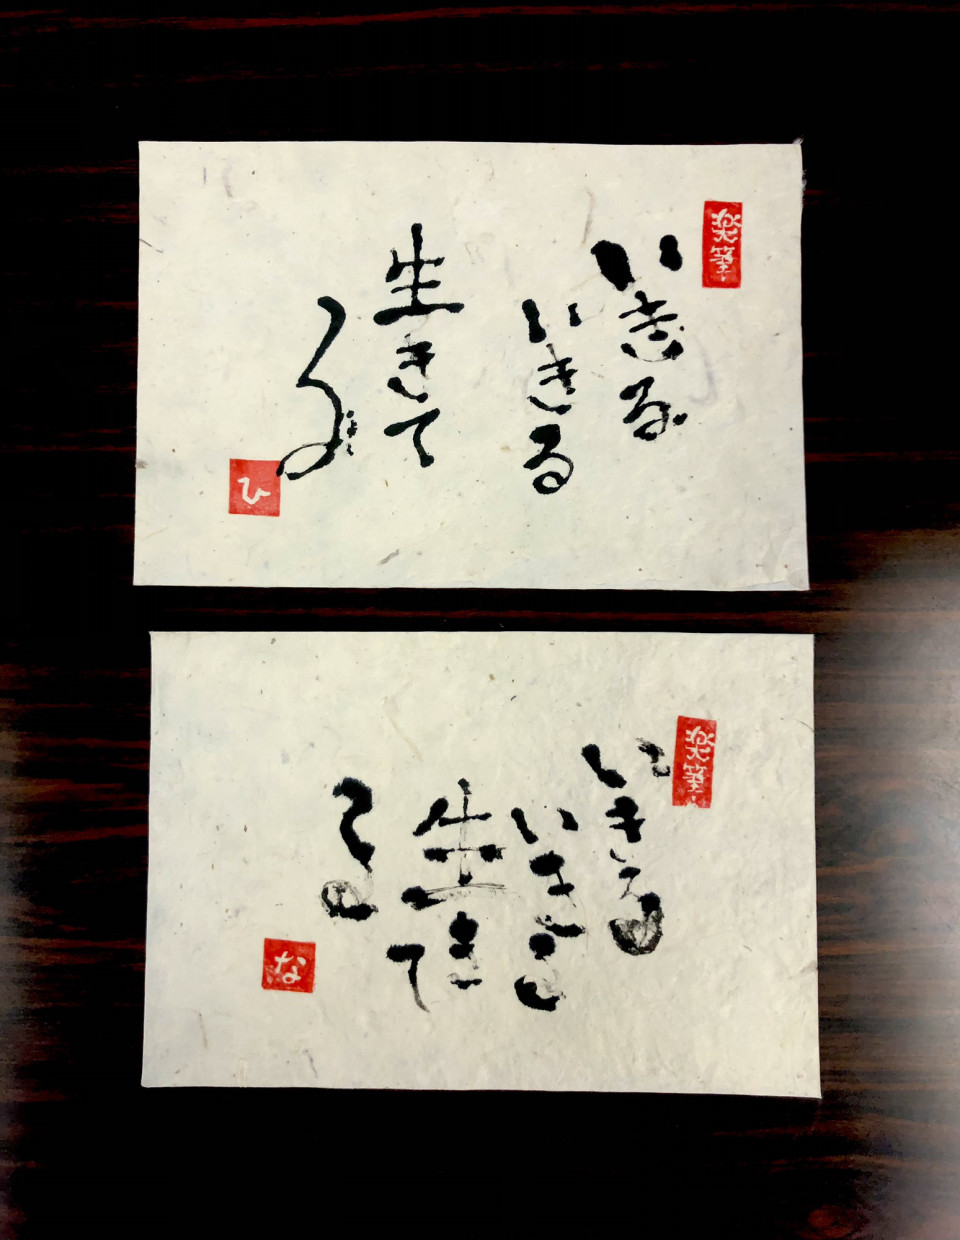 楽筆
いきる
いきる
生きて
る
ひ
楽筆
いきる
いきる
生きて
る
な